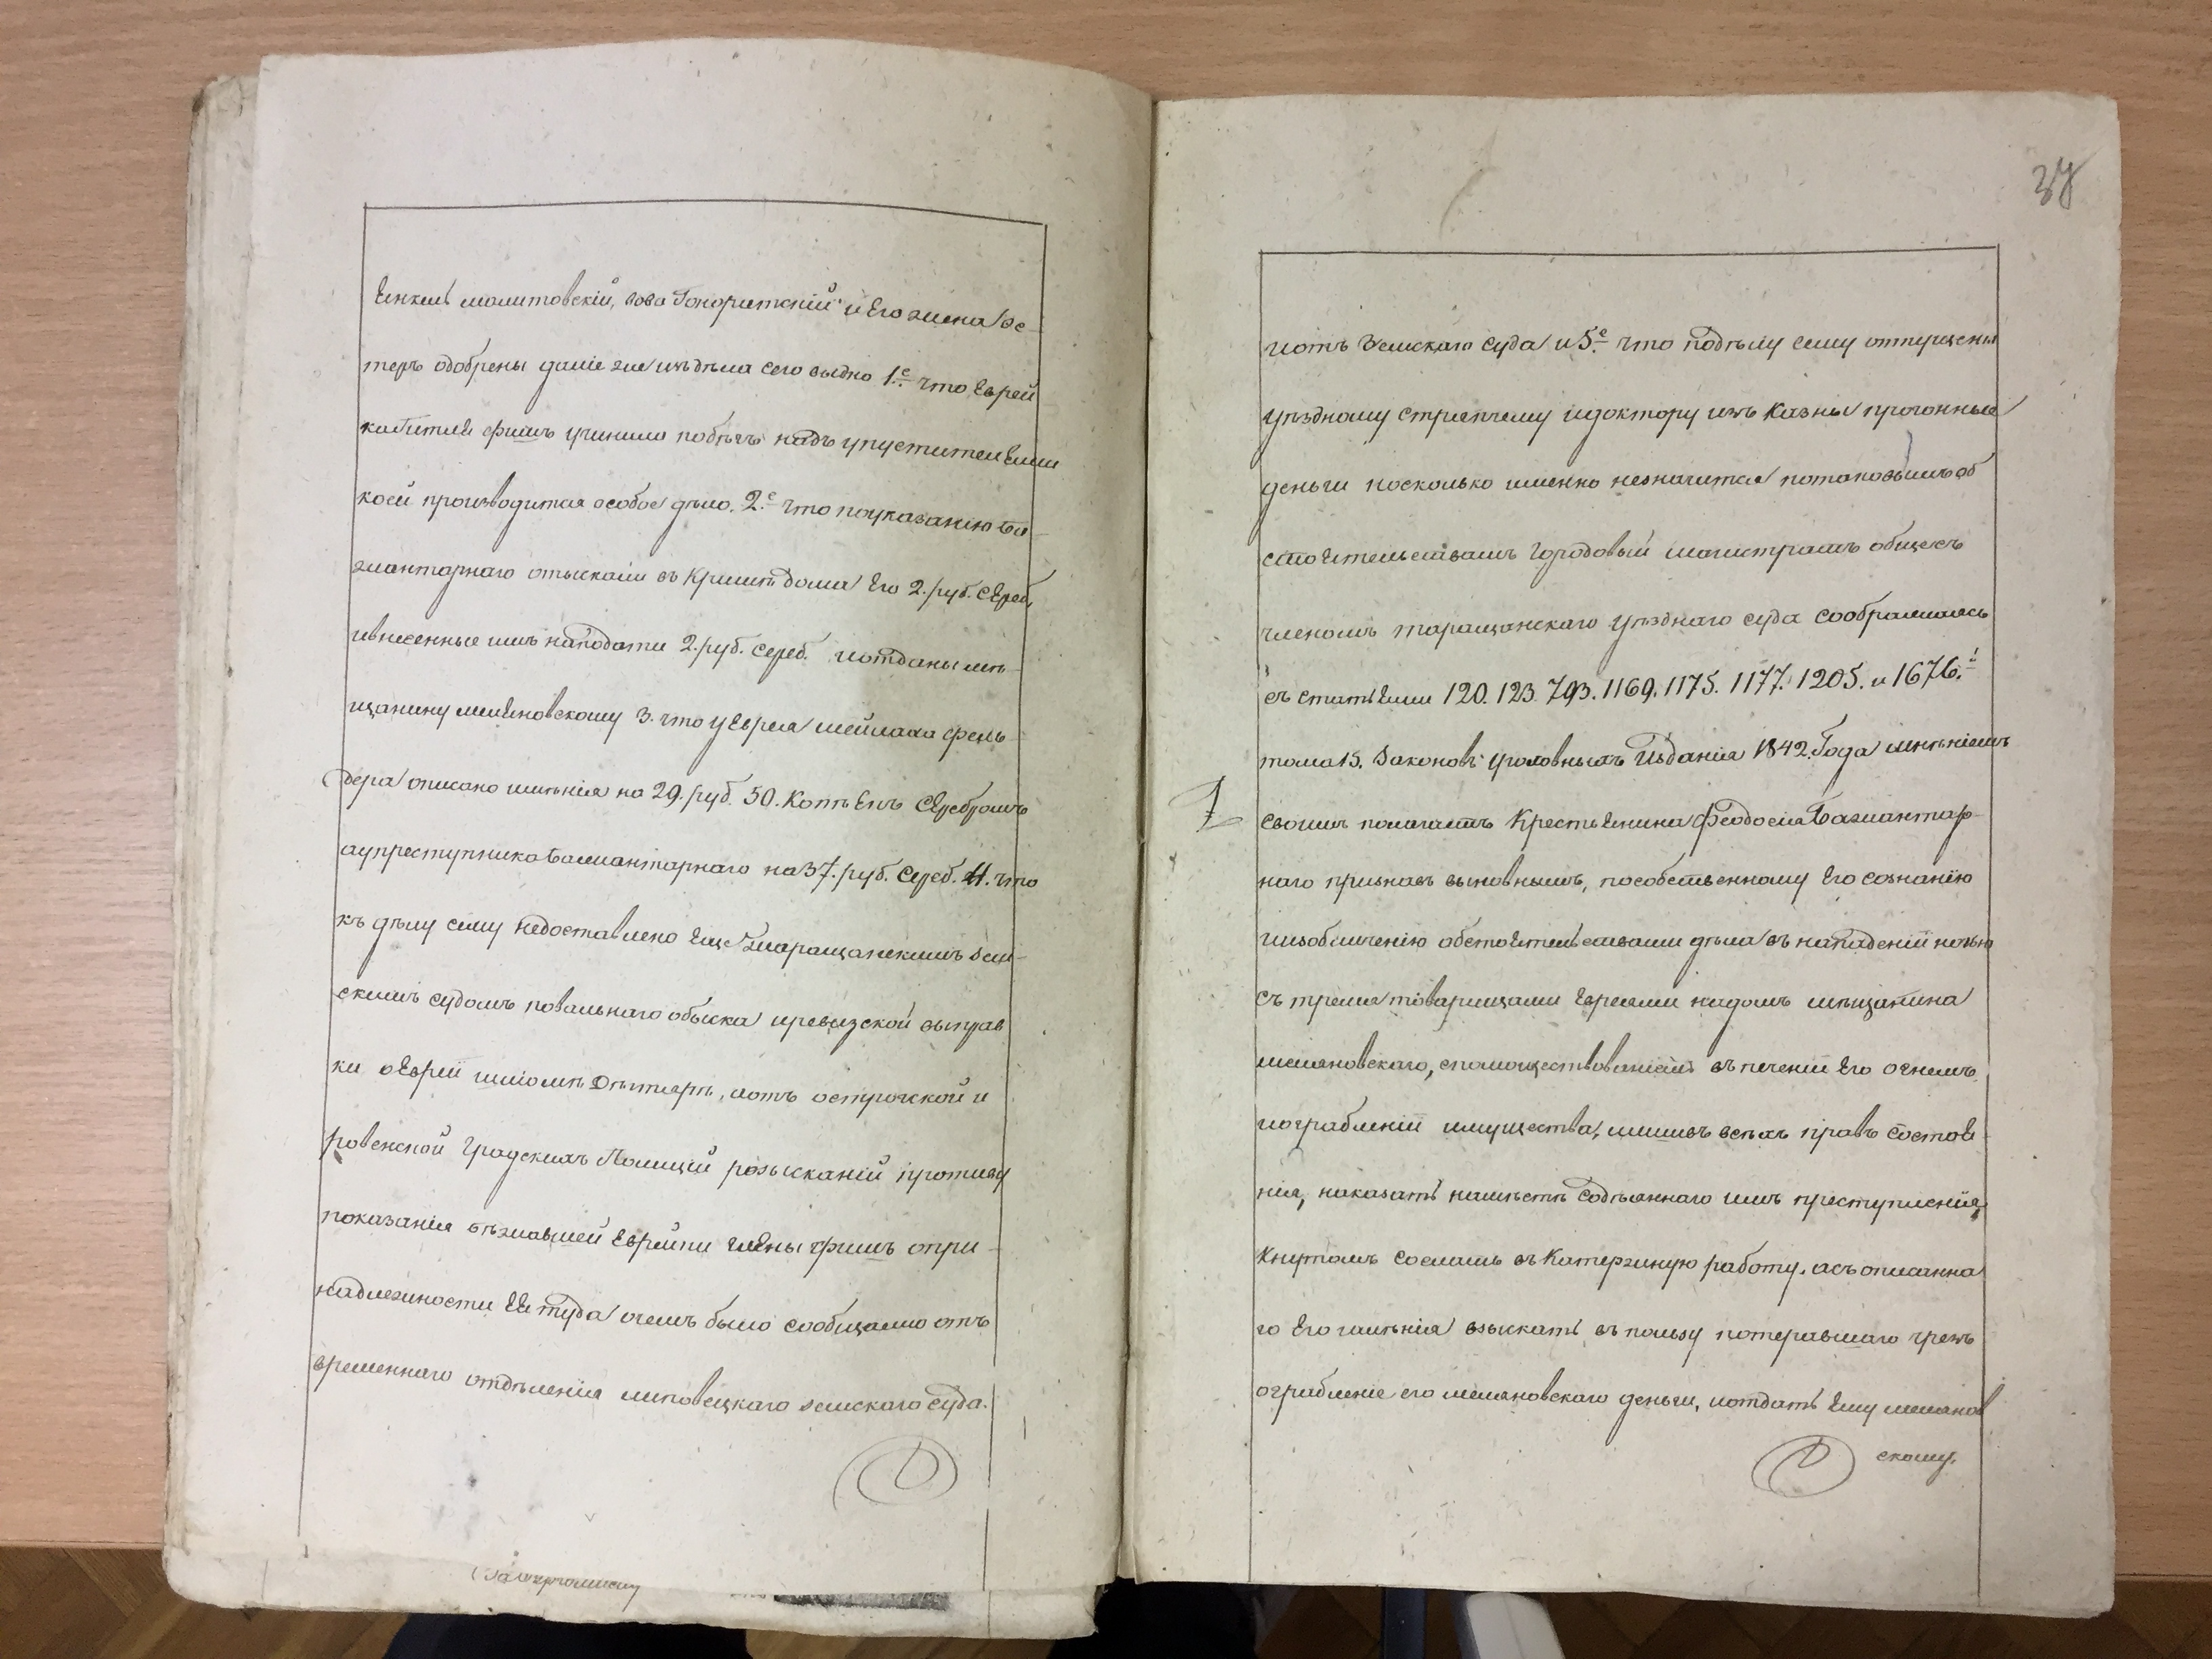 Янкель молитовскій, вова Гоноритскій и Его жена Эс-
терь одобрены далѣе же изъ дѣла сего видно 1е что Еврей
ка Гителя фишъ учинила побѣгъ надъ упустителями
коей производится особое дѣло. 2е что поуказанію Ба-
жантарнаго отысканы въ Крышѣ дома Его 2. руб. Сереб.
ивнесенные имъ наподати 2. руб. Сереб. иотданы мѣ-
щанину меляновскому 3. что у Еврея шейлаха фель-
дера описано имѣнія на 29. руб. 50. Копѣекъ Серебромъ
аупреступника Бажантарнаго на 37. руб. Сереб. 4. что
къ дѣлу сему недоставлено Еще Таращанскимъ зем-
скимъ судомъ повальнаго обыска иревизской выправ
ки о Евреѣ шліомѣ , аотъ острожской и
ровенской Градскихъ Полицій розысканій противу
показанія бѣжавшей Еврейки фишъ опри-
надлежности Ея туда очемъ было сообщаемо отъ
временнаго отдѣленія липовецкаго земскаго суда.
37
иотъ Земскаго суда и 5е что подѣлу сему отпущены
уѣздному стряпчему идоктору изъ Казны прогонные
деньги посколько именно незначится потаковымъ об
стоятельствамъ городовый магистратъ общесъ
членомъ таращанскаго уѣзднаго суда сообразяясь
съ статьями 120. 123. 793. 1169. 1175. 1177. 1205. и 1676.й
тома 15. Законовъ уголовныхъ изданія 1842. Года мнѣніемъ
своимъ полагаетъ Крестьянина Феодосія Бажантар-
наго признавъ виновнымъ, пособственному Его сознанію
иизобличенію обстоятельствами дѣла въ нападеніи ночью
съ тремя товарищами Евреями надомъ мѣщанина
меляновскаго, спомоществованіемъ въ печеніи Его огнемъ
иограбленіи имущества, лишивъ всѣхъ правъ состоя-
нія, наказать намѣстѣ содѣяннаго имъ преступленія,
Кнутомъ сослать въ Каторжную работу, асъ описанна
го Его имѣнія взыскать въ пользу потерявшаго чрезъ
ограбленіе его меляновскаго деньги, иотдать Ему мелянов
скому.